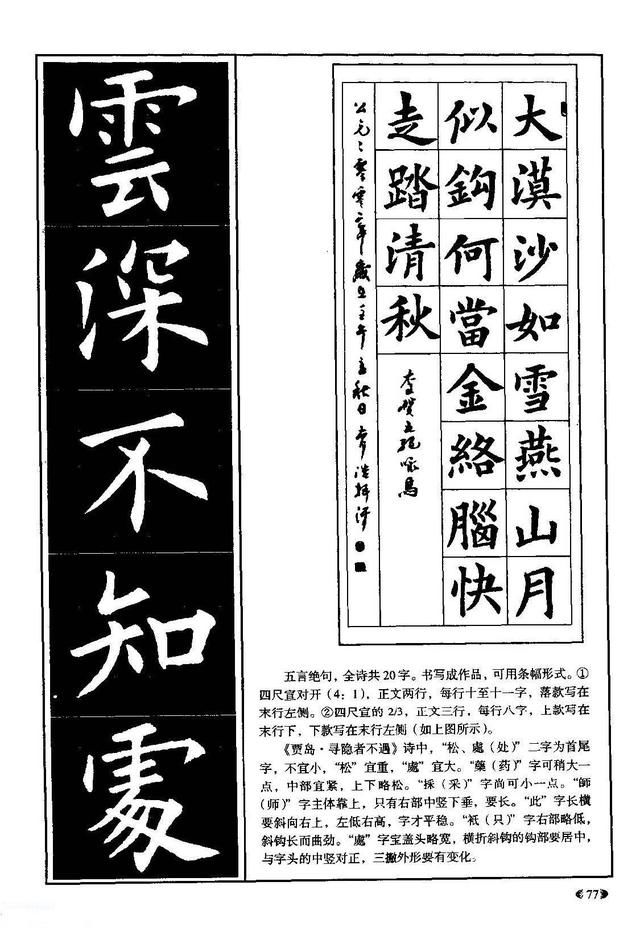 雲深不知處
大漠沙如雪燕山月
似鈎何當金絡腦快
走踏清秋
李賀五絕詠馬
公元二零零二年歲在壬午立秋日
五言绝句，全诗共20字。书写成作品，可用条幅形式。①
四尺宣对开（4：1），正文两行，每行十至十一字，落款写在
末行左侧。②四尺宣的2/3，正文三行，每行八字，上款写在
末行下，下款写在末行左侧（如上图所示）。
《贾岛·寻隐者不遇》诗中，“松、處（处）”二字为首尾
字，不宜小，“松”宜重，“處”宜大。“藥（药）”字可稍大一
点，中部宜紧，上下略松。“採（采）”字尚可小一点。“師
（师）”字主体靠上，只有右部中竖下垂，要长。“此”字长横
要斜向右上，左低右高，字才平稳。“衹（只）”字右部略低，
斜钩长而曲劲。“處”字宝盖头略宽，横折斜钩的钩部要居中，
与字头的中竖对正，三撇外形要有变化。
77